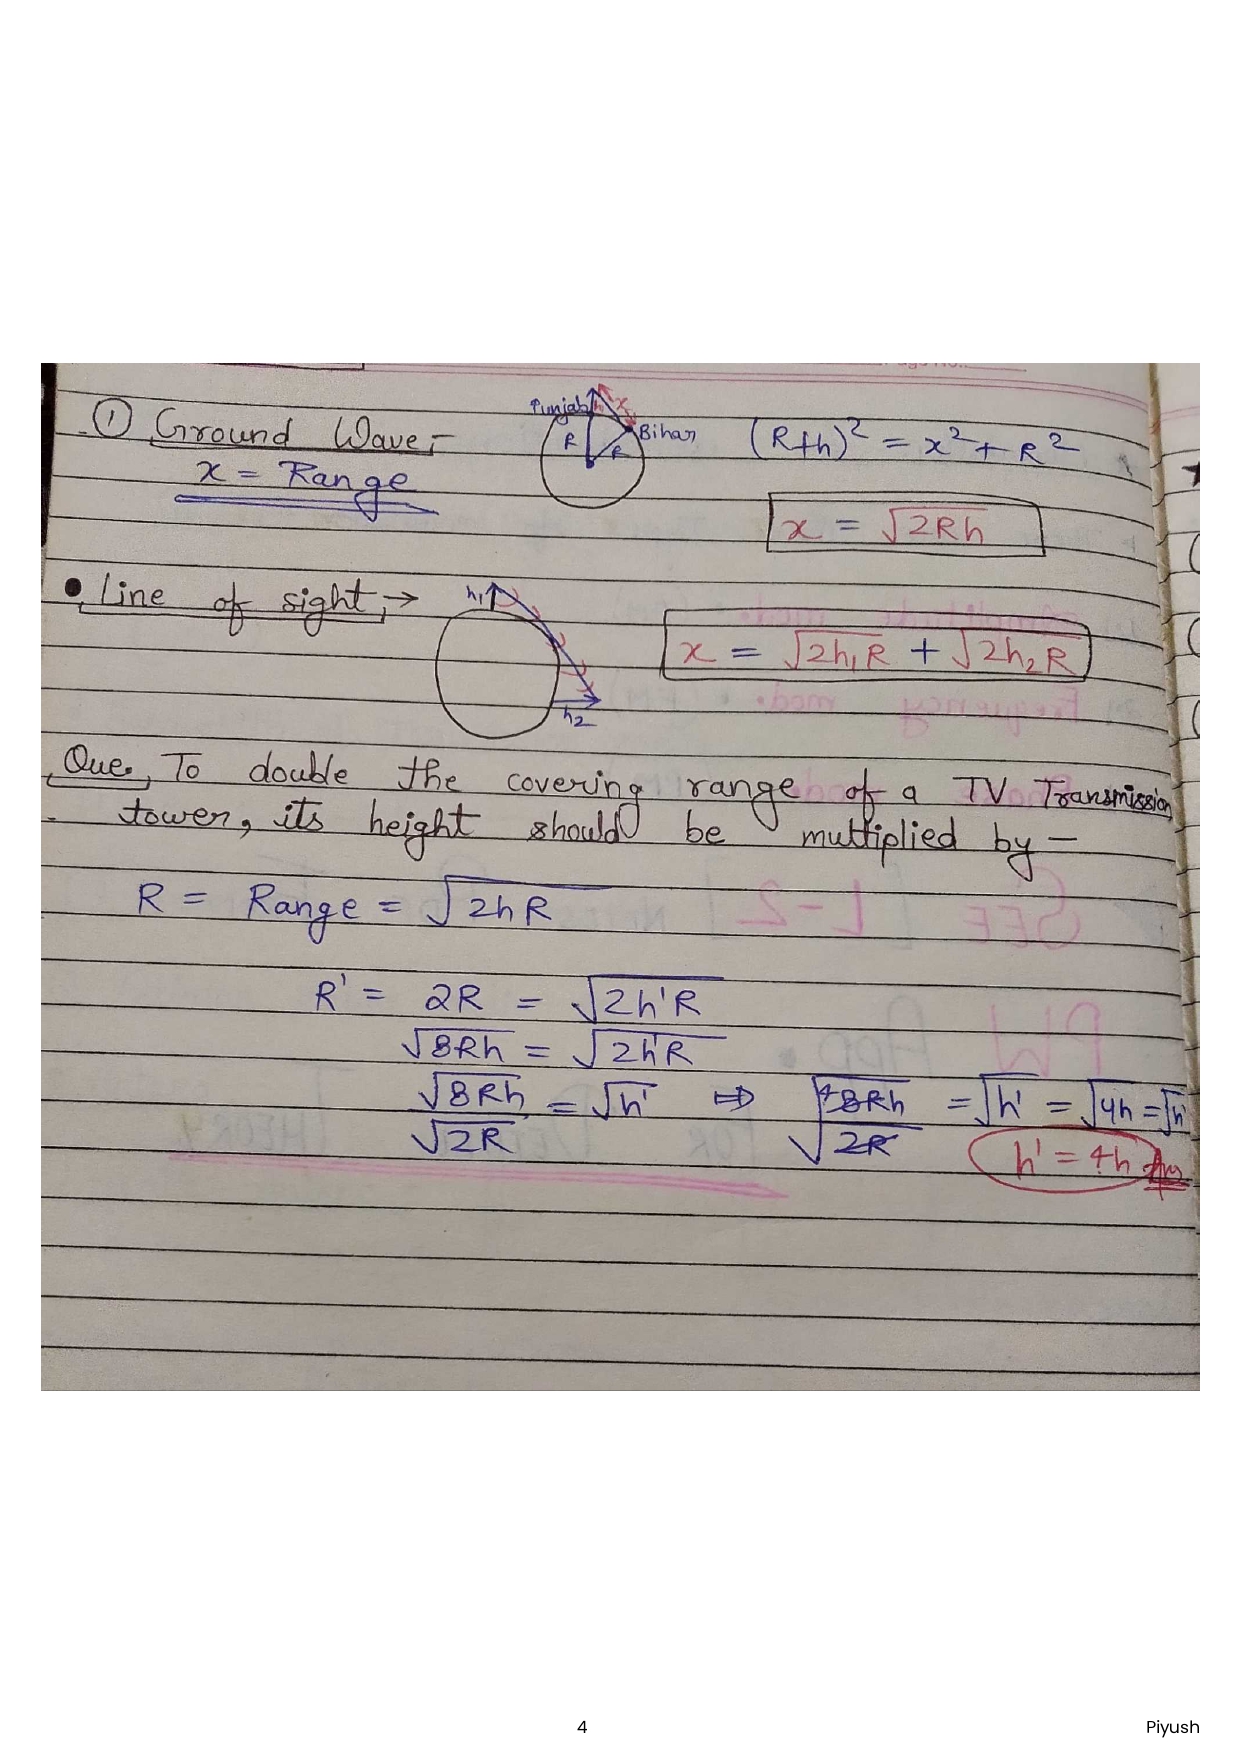 ① Ground Wave,-
x = Range
Punjab
h
x
Bihar
R
R
(R+h)² = x² + R²
x = √2Rh
• Line of sight, →
h₁
h₂
x = √2h₁R + √2h₂R
Que, To double the covering range of a TV Transmission
tower, its height should be multiplied by -
R = Range = √2hR
R' = 2R = √2h'R
√8Rh = √2h'R
√8Rh / √2R = √h' ⇒ √8Rh / √2R = √h' = √4h = √h'
h' = 4h Ans
4
Piyush